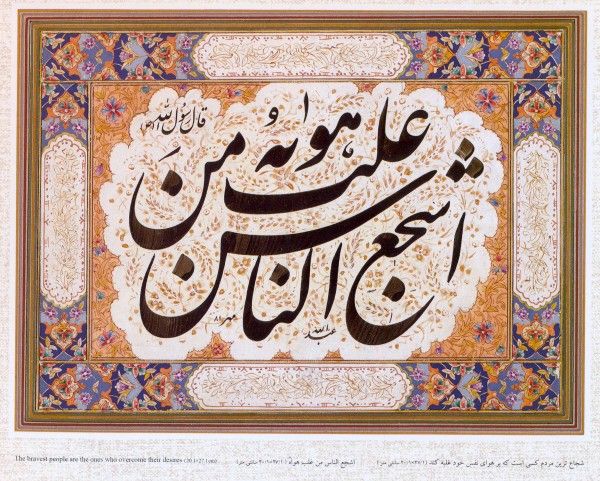 قال رسول الله (ص)
اشجع الناس من غلب هواه
عبدالله
مهر ۸۱
The bravest people are the ones who overcome their desires
اشجع الناس من غلب هواه
شجاع ترین مردم کسی است که بر هوای نفس خود غلبه کند